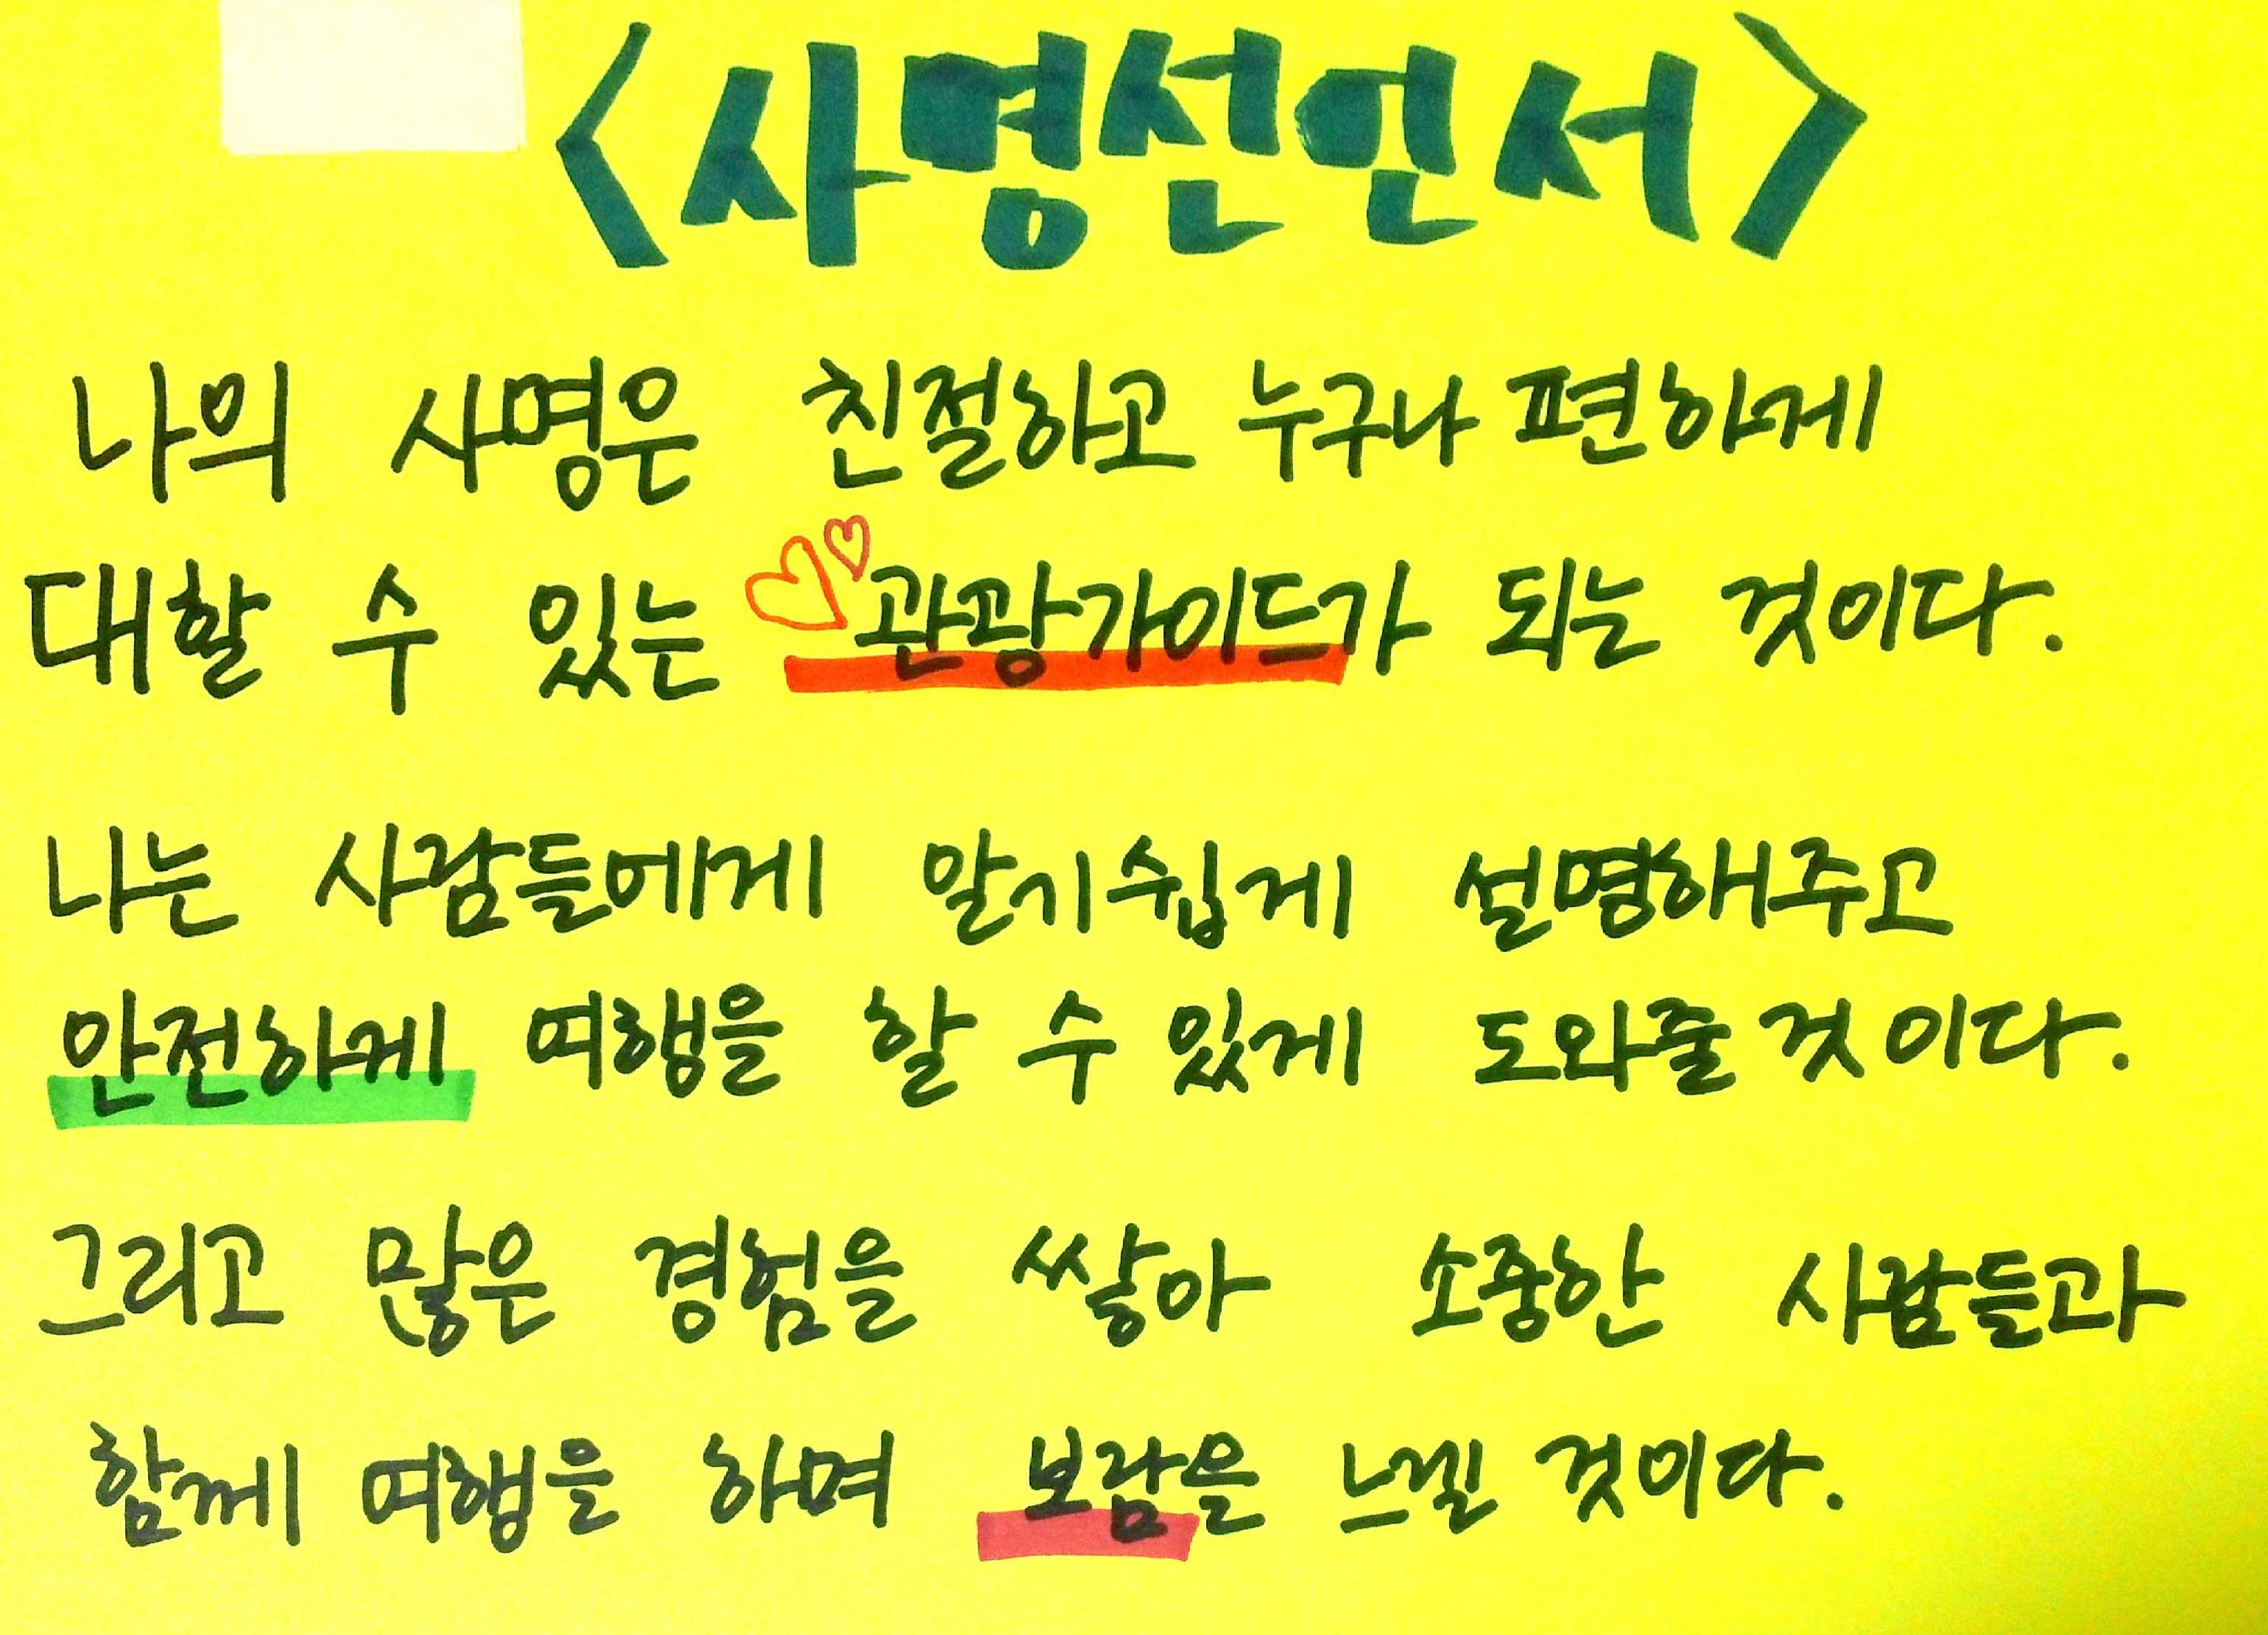 <사명선언서>
나의 사명은 친절하고 누구나 편하게
대할 수 있는 ♡♡관광가이드가 되는 것이다.
나는 사람들에게 알기쉽게 설명해주고
안전하게 여행을 할 수 있게 도와줄 것이다.
그리고 많은 경험을 쌓아 소중한 사람들과
함께 여행을 하며 보람을 느낄 것이다.